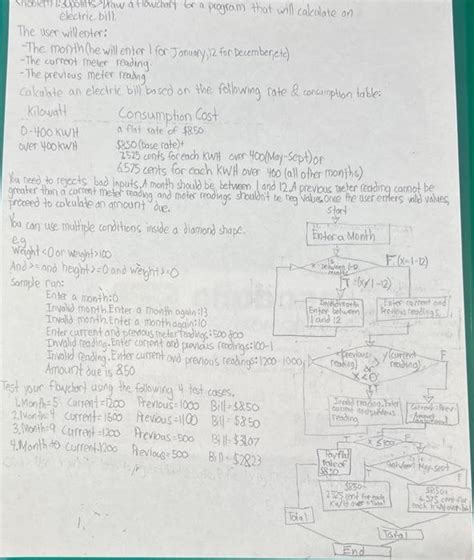 Problem 1: 30points >Draw a flowchart for a program that will calculate an
electric bill.
The user will enter:
-The month(he will enter 1 for January, 12 for December, etc)
-The current meter reading.
-The previous meter reading
Calculate an electric bill based on the following rate & consumption table:
Kilowatt Consumption Cost
0-400 KWH a flat rate of $8.50
over 400 KWH $8.50 (base rate)+
cents for each KWH over 400 (May-Sept) or
6.575 cents for each KWH over 400 (all other months)
You need to rejects bad inputs. A month should be between 1 and 12. A previous meter reading cannot be
greater than a current meter reading and meter readings shouldn't be neg values. Once the user enters valid values,
proceed to calculate an amount due.
You can use multiple conditions inside a diamond shape.
e.g
Weight <0 or weight >100
And >= and height >=0 and weight ><0
Sample run:
Enter a month: 0
Invalid month. Enter a month again: 13
Invalid month. Enter a month again: 10
Enter current and previous meter readings: 500 800
Invalid reading. Enter current and previous readings: 100 -1
Invalid reading. Enter current and previous readings: 1200 1000
Amount due is 8.50
Test your flowchart using the following 4 test cases.
1. Month= 5 Current=1200 Previous=1000 Bill=$8.50
2. Month= 4 Current=1600 Previous=1100 Bill=$8.50
3. Month= 9 Current=1200 Previous=500 Bill=
4. Month= Current=1200 Previous=500 Bill= $28.23
Start
Enter a Month
F (x=1-12)
T
Enter between
1 and 12
Enter current and
Previous readings
previous
reading)
(current
reading)
or
x<0
F
T
Invalid reading. Enter
current and previous
reading
Current-Prev
x ≤400
F
Pay flat
rate of
$8.50
between May-sept
F
$8.50+
$8.50+
6.575 cent for
Total
Total
End